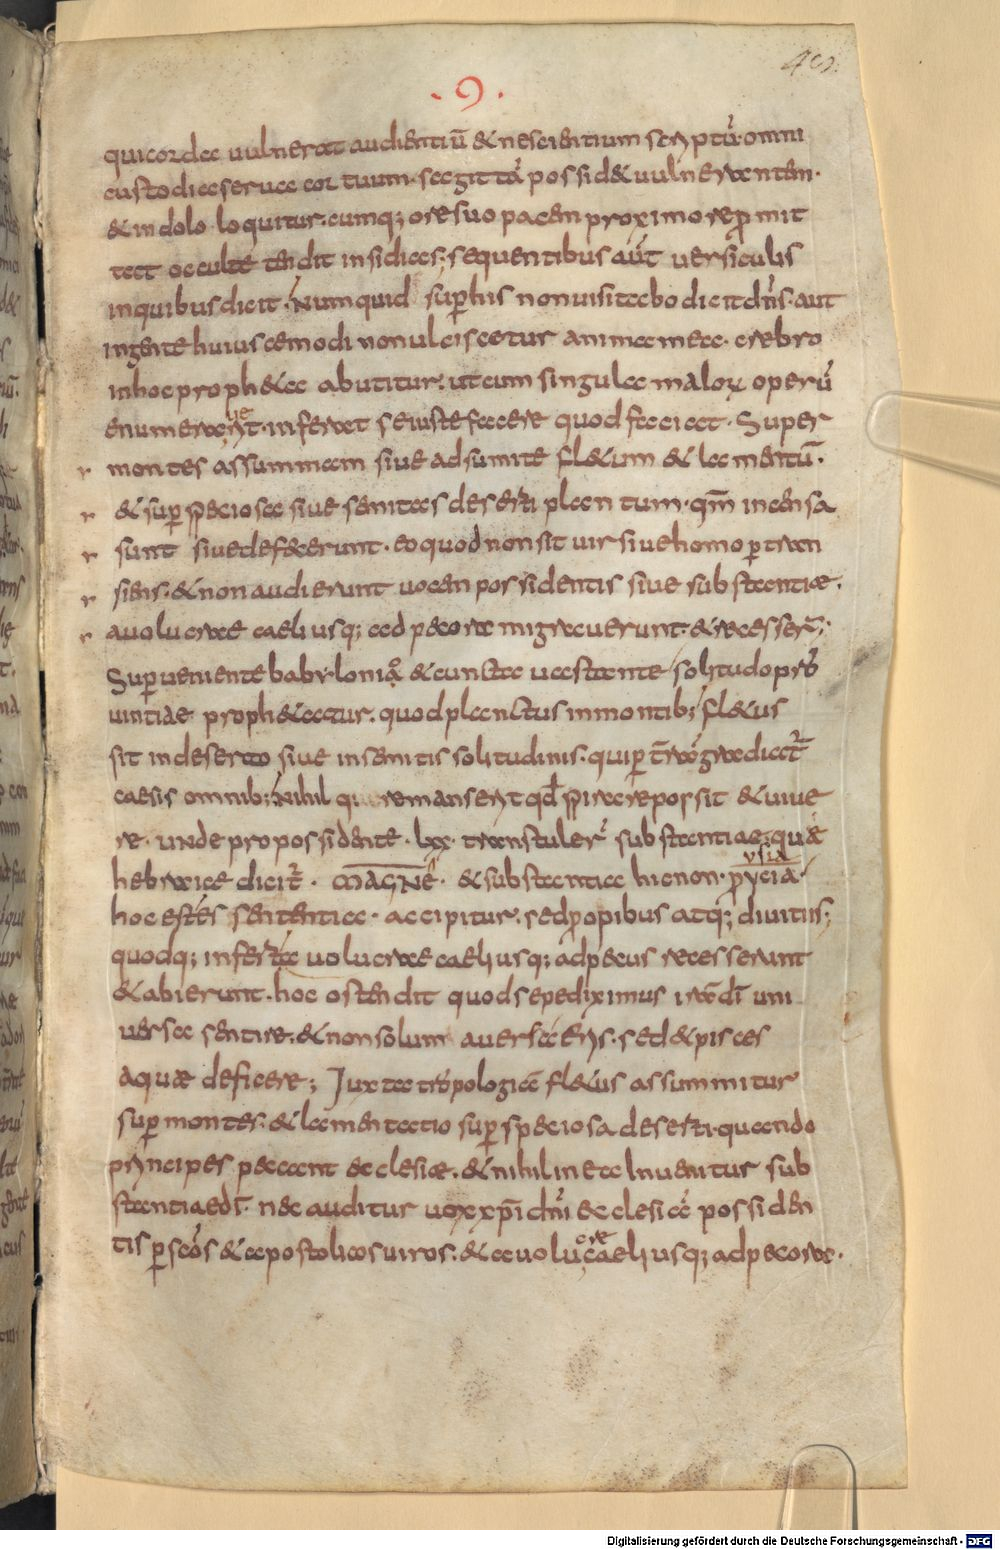 49.
· 9 ·
qui corda uulnerat audientiū & nescientium scriptū· omni
custodia serua cor tuum· sagittā possid& uulnerantem·
& in dolo loquitur· cumq; ore suo pacem proximo repromit
tat occulte tendit insidias; sequentibus aūt uersiculis
in quibus dicit· Numquid sup his non uisitabo dicit dn̄s· aut
in gente huiuscemodi non ulciscetur anima mea· crebro
in hoc proph&a abutitur· ut cum singula maloꝝ operū
enumerauerit· inferat se iuste facere quod faciat· Super
r montes assummam siue adsumite fl&um & lamentū·
r & sup speciosa siue semitas deserti planctum· qm̄ incensa
r sunt siue defecerunt· eo quod non sit uir siue homo ptran
r siens· & non audierunt uocem possidentis siue substantiæ·
r a uolucrae caeli usq; ad pecora migrauerunt· & recesser̄;
Superueniente babylonia & cuncta uastante solitudo pro
uintiae proph&atur· quod planctus in montib; fl&us
sit in deserto siue in semitis solitudinis· qui p
caesis omnib; Nihil remanserit qd spirare possit & uiue
re· unde pro possidente· lxx· transtuler̄ substantiae; quae
hebraice dicit̄· MAGNE· & substantia hic non· p
usia
hoc est es sententia· accipitur· sed p opibus atq; diuitiis;
quodq; infert a uolucrae caeli usq; ad pecus recesserunt
& abierunt· hoc ostendit quod sepe diximus irā dī uni
uersa sentire· & non solum auersa eis· sed & pisces
aquæ deficere; Iuxta tropologiā fl&us assummitur
sup montes· & lamentatio sup speciosa deserti· quando
principes peccant æclesiæ· & nihil in ea Inuenitur sub
stantiae dī· nec auditur uox xp̄i dn̄i æclesiae possiden
tis p scōs & apostolicos uiros· & a uolucrae caeli usq; ad pecora·
Digitalisierung gefördert durch die Deutsche Forschungsgemeinschaft - DFG